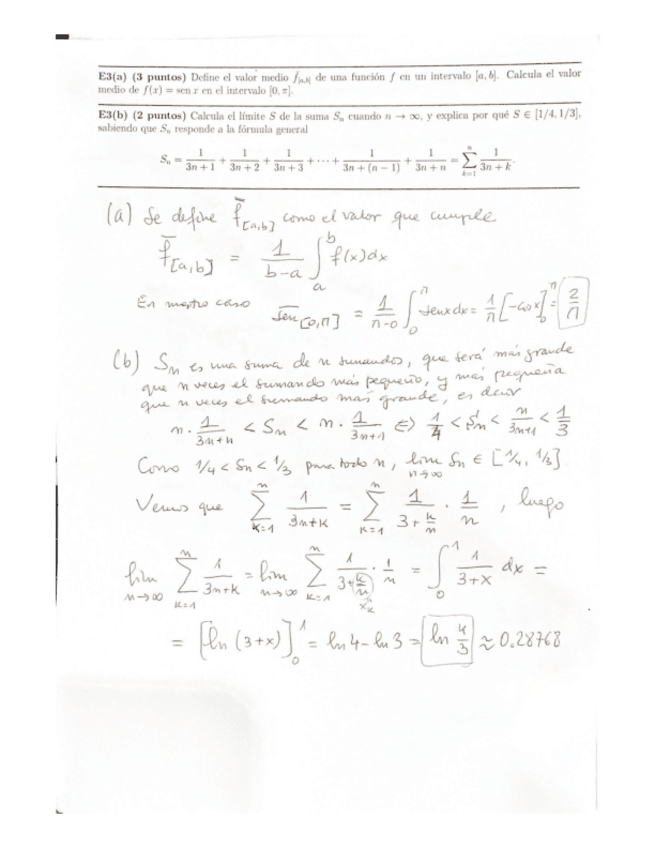 E3(a) (3 puntos) Define el valor medio f̄[a,b] de una función f en un intervalo [a, b]. Calcula el valor
medio de f(x) = sen x en el intervalo [0, π].
E3(b) (2 puntos) Calcula el límite S de la suma Sn cuando n → ∞, y explica por qué S ∈ [1/4, 1/3],
sabiendo que Sn responde a la fórmula general
Sn = 1/(3n + 1) + 1/(3n + 2) + 1/(3n + 3) + ··· + 1/(3n + (n − 1)) + 1/(3n + n) = ∑_{k=1}^{n} 1/(3n + k).
(a) Se define f̄[a,b] como el valor que cumple
f̄[a,b] = 1/(b-a) ∫_a^b f(x)dx
En nuestro caso sen[0,π] = 1/(π-0) ∫_0^π senx dx = 1/π [-cosx]_0^π = 2/π
(b) Sn es una suma de n sumandos, que será más grande
que n veces el sumando más pequeño, y más pequeña
que n veces el sumando más grande, es decir
n · 1/(3n+n) < Sn < n · 1/(3n+1) ⇔ 1/4 < Sn < n/(3n+1) < 1/3
Como 1/4 < Sn < 1/3 para todo n, lim_{n→∞} Sn ∈ [1/4, 1/3]
Vemos que ∑_{k=1}^{n} 1/(3n+k) = ∑_{k=1}^{n} 1/(3+k/n) · 1/n , luego
lim_{n→∞} ∑_{k=1}^{n} 1/(3n+k) = lim_{n→∞} ∑_{k=1}^{n} 1/(3+k/n) · 1/n = ∫_0^1 1/(3+x) dx =
xk
= [ln (3+x)]_0^1 = ln4 - ln3 = ln 4/3 ≈ 0.28768